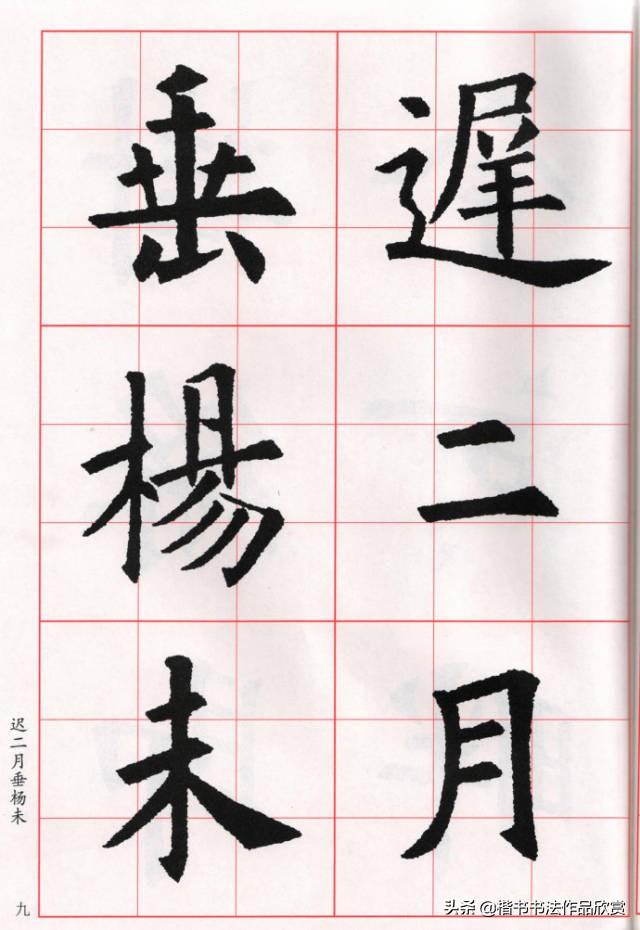 遲二月
垂楊未
迟二月垂杨未
九
头条 @楷书书法作品欣赏